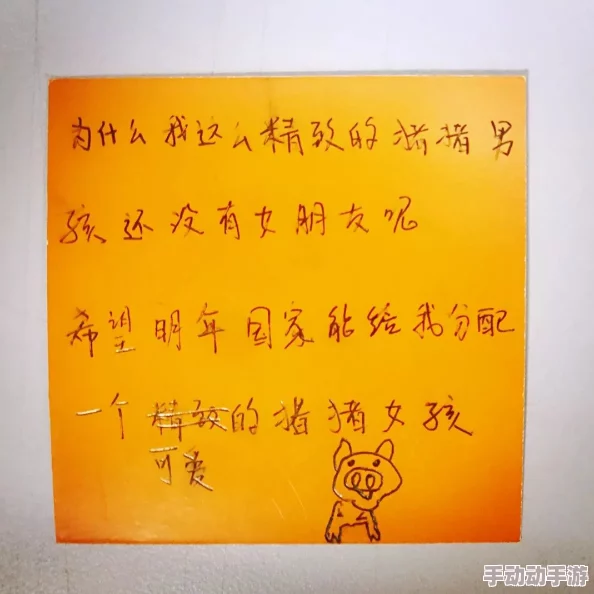 为什么我这么精致的猪猪男
孩还没有女朋友呢
希望明年国家能给我分配
一个精致的猪猪女孩
可爱
手动动手游